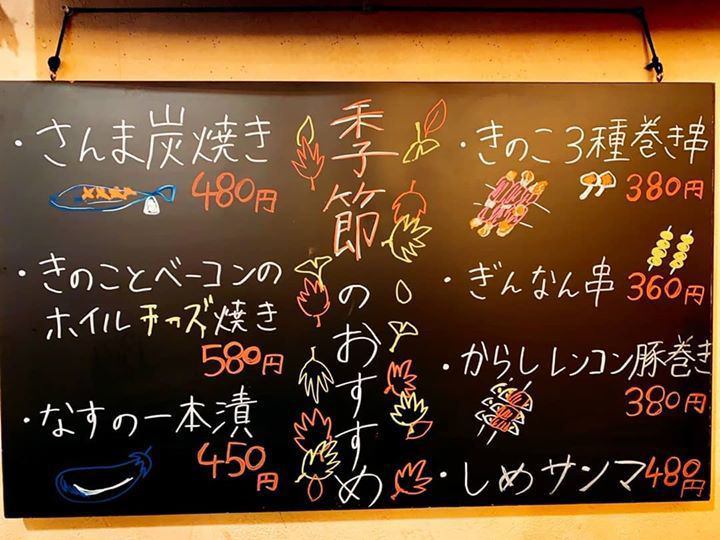 季節のおすすめ
・さんま炭焼き
480円
・きのことベーコンの
ホイルチーズ焼き
580円
・なすの一本漬
450円
・きのこ3種巻き串
380円
・ぎんなん串 360円
・からしレンコン豚巻き
380円
・しめサンマ 480円